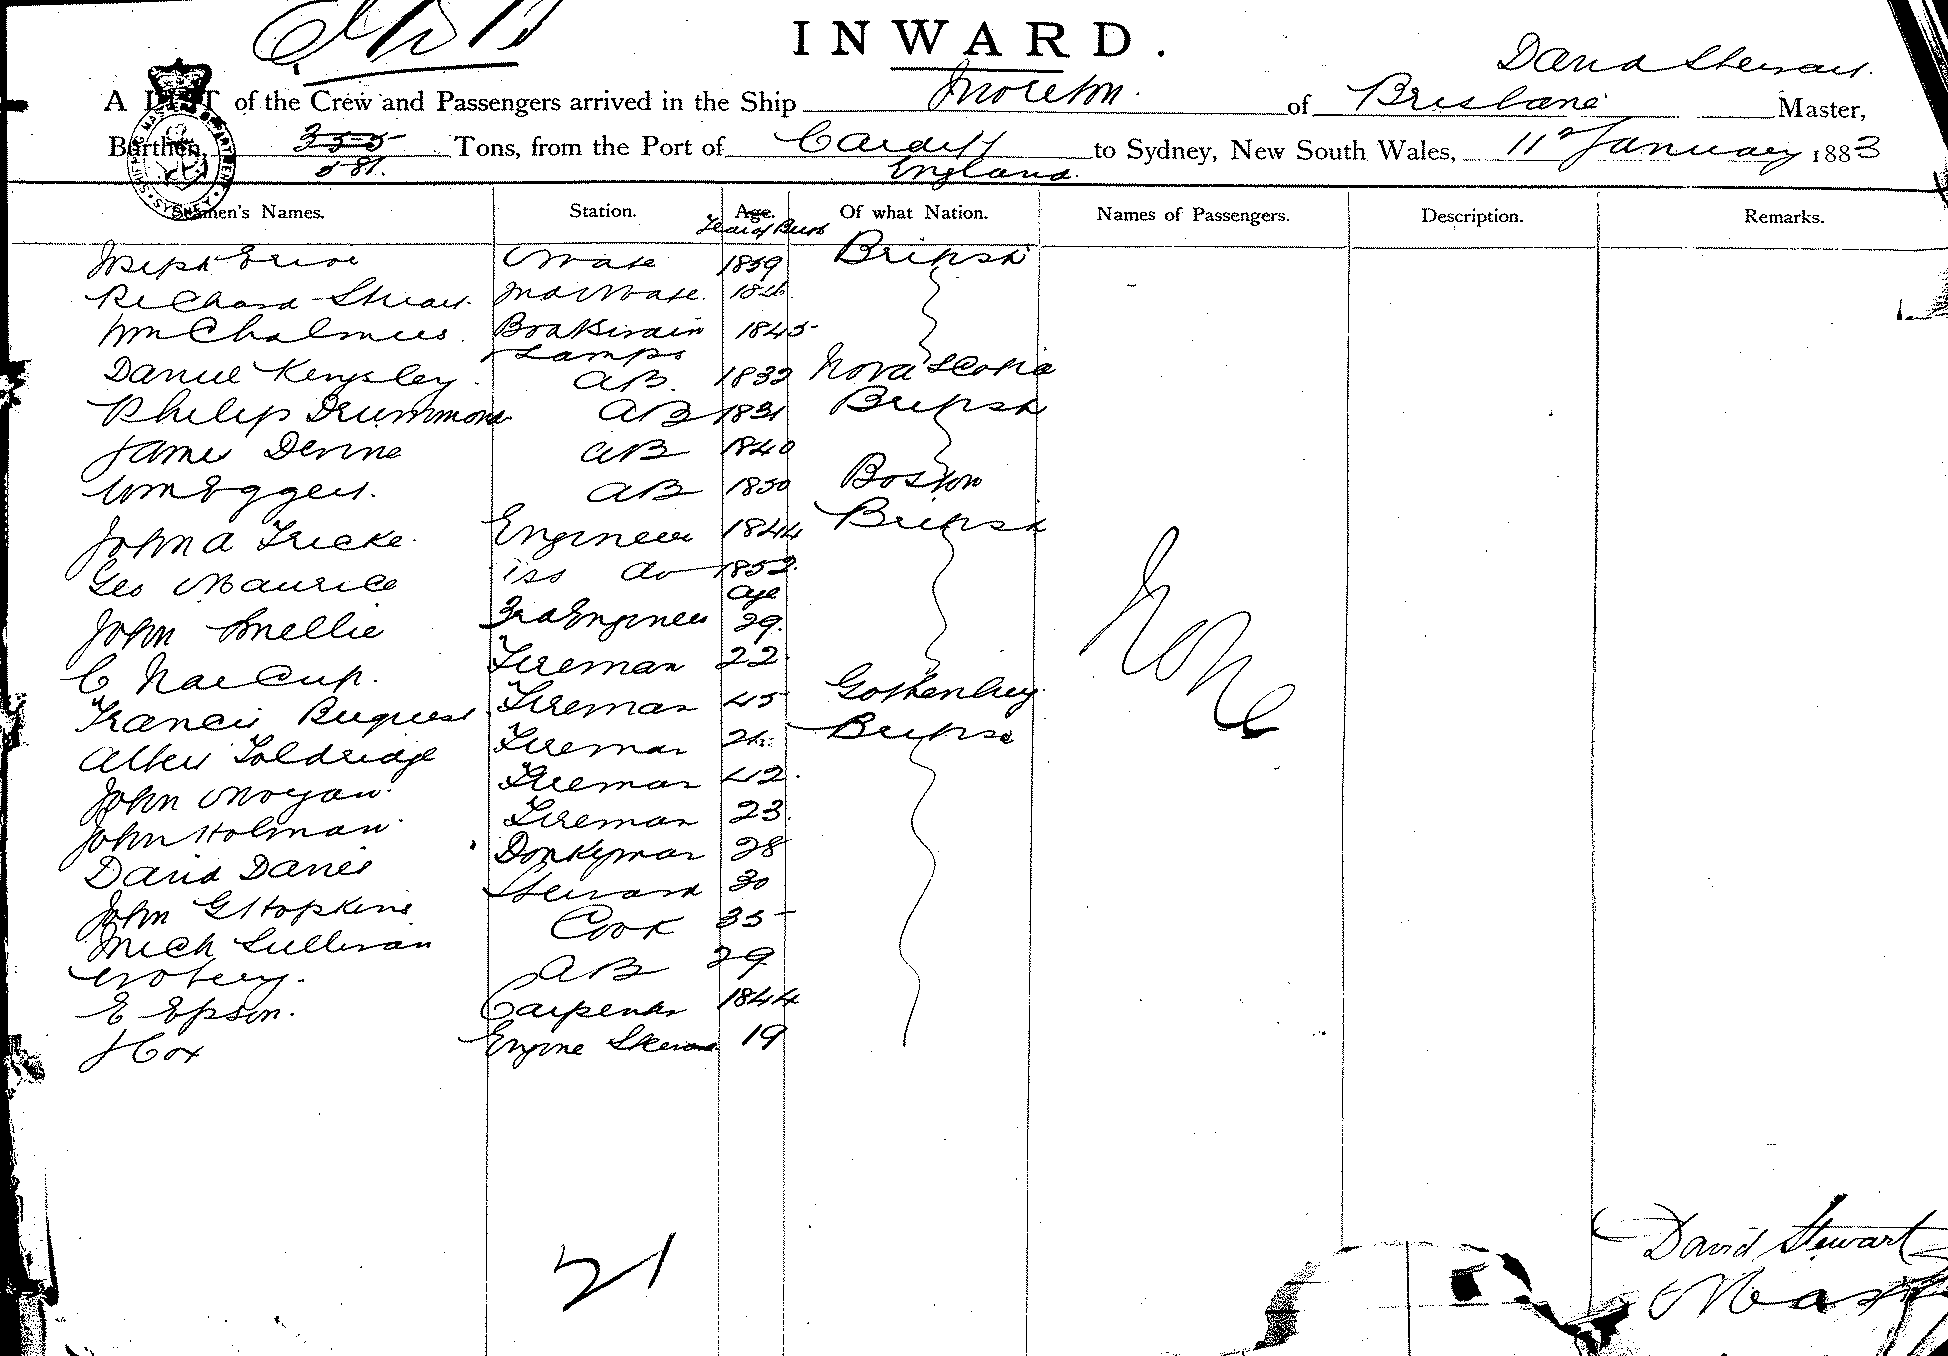 INWARD.
David Stewart
A LIST of the Crew and Passengers arrived in the Ship Moreton. of Brisbane Master,
Burthen, 355 Tons, from the Port of Cardiff to Sydney, New South Wales, 11th January 1883
581. England
Seamen's Names. Station. Age. Of what Nation. Names of Passengers. Description. Remarks.
Year of Birth
Joseph Mate 1859 British
Richard Stewart 2nd Mate. 184
Wm Chalmers Boatswain 1845
& Lamps
Daniel Kingsley AB. 1832 Nova Scotia
Philip Drummond AB 1831 British
James Devine AB 1840
Wm Eggers. AB 1850 Boston
John A Fricke Engineer 1844 British
Geo Maurice do 1852
age
John Smellie 3rd Engineer 29.
C Fireman 22
Francis Fireman 45 Gothenburg
Toldridge Fireman British
John Morgan Fireman 42.
John Holman Fireman 23.
David Davies Donkeyman 28
John G Hopkins Steward 30
Mich Sullivan Cook 35
AB 29
E Epson. Carpenter 1844
J Cox Engine Steward 19
None
21
David Stewart
Master